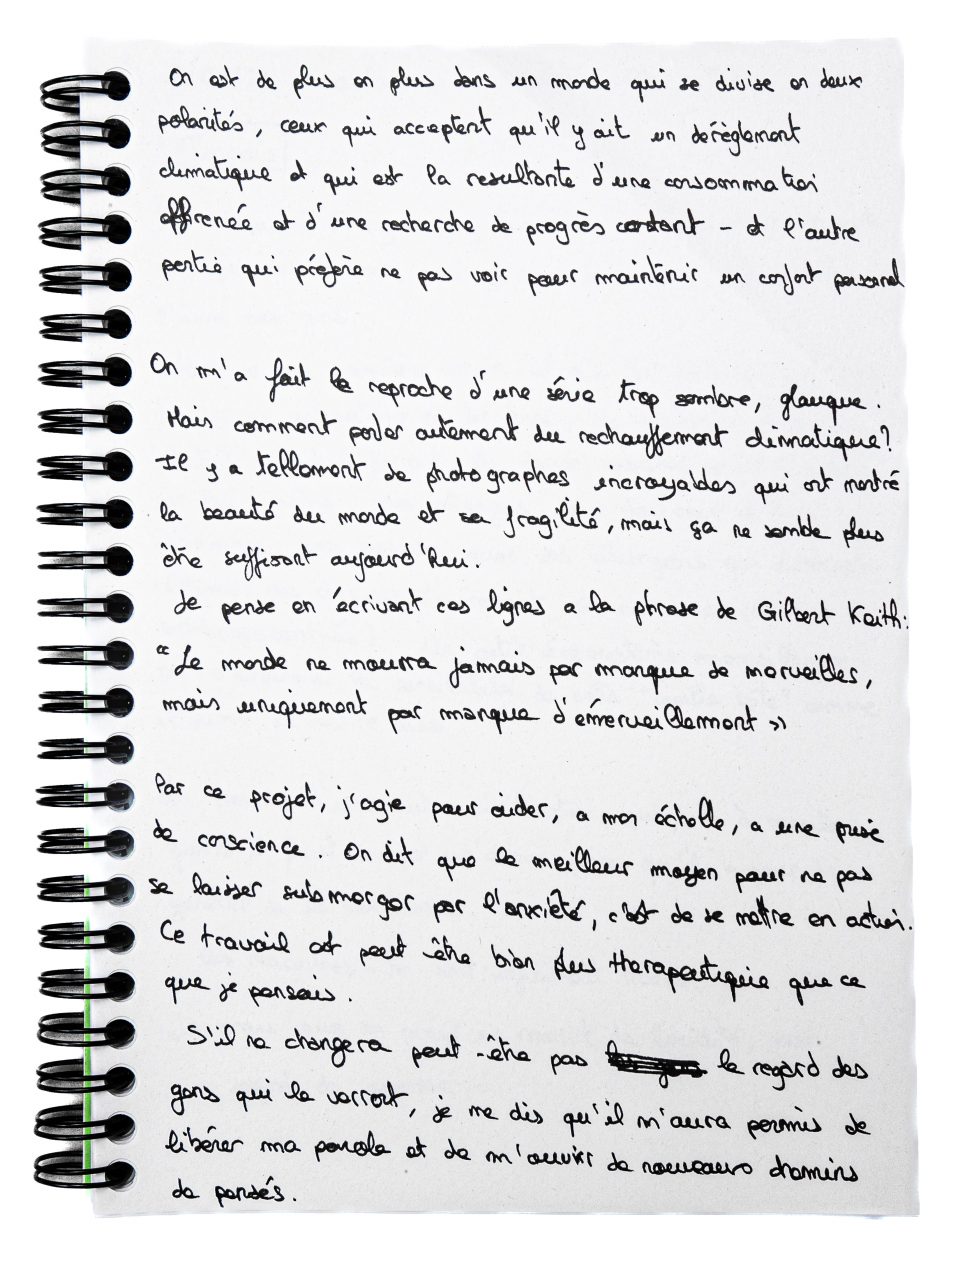 On est de plus en plus dans un monde qui se divise en deux
polarités, ceux qui acceptent qu'il y ait un dérèglement
climatique et qui est la resultante d'une consommation
effrenée et d'une recherche de progrès constant - et l'autre
partie qui préfère ne pas voir pour maintenir un confort personnel
On m'a fait le reproche d'une série trop sombre, glauque.
Mais comment parler autement du rechauffement climatique?
Il y a tellement de photographes incroyables qui ont montré
la beauté du monde et sa fragilité, mais ça ne semble plus
être suffisant aujourd'hui.
Je pense en écrivant ces lignes a la phrase de Gilbert Keith:
"Le monde ne mourra jamais par manque de merveilles,
mais uniquement par manque d'émerveillement »
Par ce projet, j'agie pour aider, a mon échelle, a une prise
de conscience. On dit que le meilleur moyen pour ne pas
se laisser submerger par l'anxiété, c'est de se mettre en action.
Ce travail est peut-être bien plus therapeutique que ce
que je pensais.
S'il ne changera peut-être pas le regard des
gens qui le verront, je me dis qu'il m'aura permis de
libérer ma parole et de m'ouvrir de nouveaux chemins
de pensés.